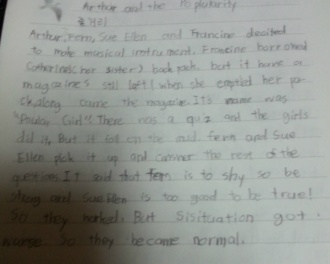 Arthur and the Popularity
줄거리
Arthur, Fern, Sue Ellen and Francine decided
to make musical instrument. Francine borrowed
Catherine's (her sister) back pack. but it have a
magazine's still left! when she emptied her pa-
ck, along came the magazine. It's name was
"Popular Girl". There was a quiz and the girls
did it. But it fell on the and. fern and Sue
Ellen pick it up and answer the rest of the
questions. It said that fern is to shy so be
strong and Sue Ellen is too good to be true!
So they worked. But Sisituation got
worse. So they became normal.